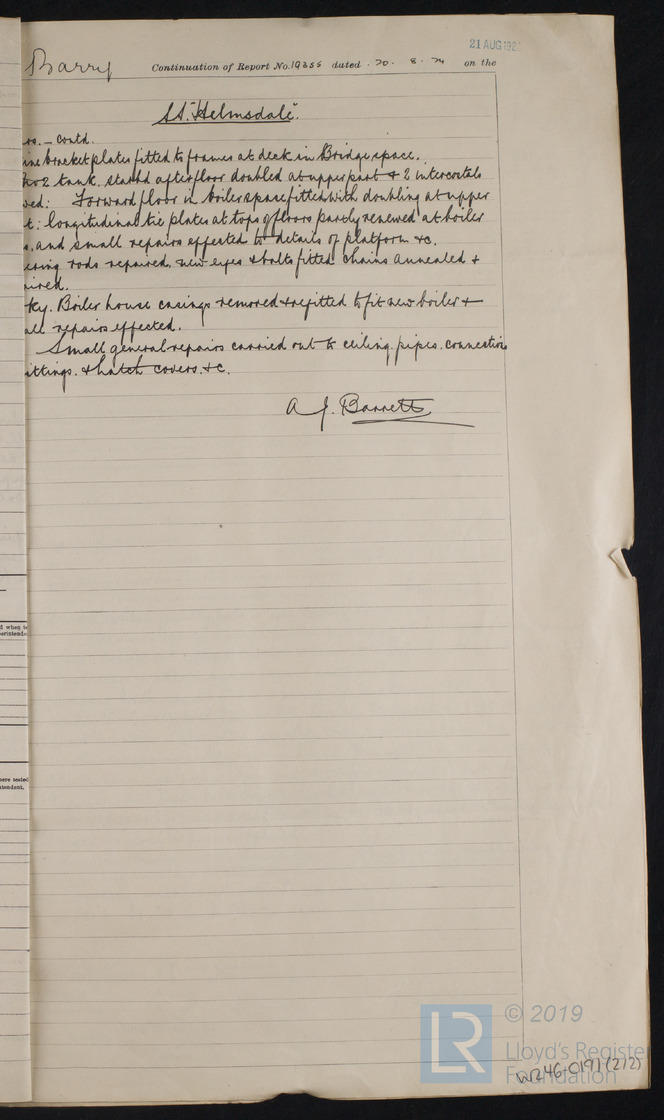 21 AUG 192
Barry Continuation of Report No. 19355 dated 20. 8. 24 on the
S.S. "Helmsdale".
rs. - contd.
ine bracket plates fitted to frames at deck in Bridge space.
No 2 tank. starbd after floor doubled at upper part & 2 intercostals
wed: Forward floor in boiler space fitted with doubling at upper
t: longitudinal tie plates at tops of floors partly renewed at boiler
s, and small repairs effected to details of platform &c.
eering rods repaired, new eyes & bolts fitted chains annealed &
aired.
ky. Boiler house casings removed & refitted to fit new boiler &
all repairs effected.
Small general repairs carried out to ceiling, pipes, connections
ittings. & hatch covers. &c.
A J. Barrett
d when te
erintende
here tested
tendent.
LR © 2019
Lloyd's Register
Foundation
W246-0191 (2/2)